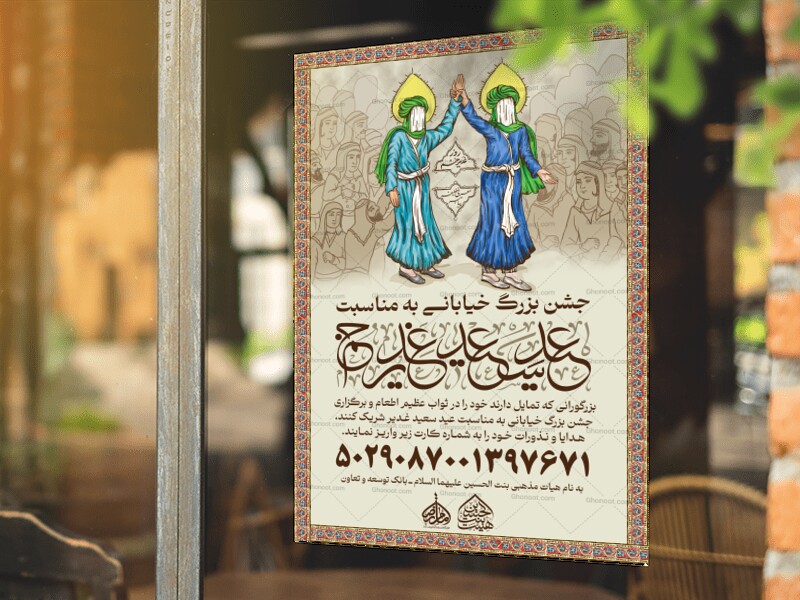 جشن بزرگ خیابانی به مناسبت
عید سعید غدیر خم
بزرگورانی که تمایل دارند خود را در ثواب عظیم اطعام و برگزاری
جشن بزرگ خیابانی به مناسبت عید سعید غدیر شریک کنند،
هدایا و نذورات خود را به شماره کارت زیر واریز نمایند.
۵۰۲۹۰۸۷۰۰۱۳۹۷۶۷۱
به نام هیات مذهبی بنت الحسین علیهما السلام - بانک توسعه و تعاون
Ghonoot.com